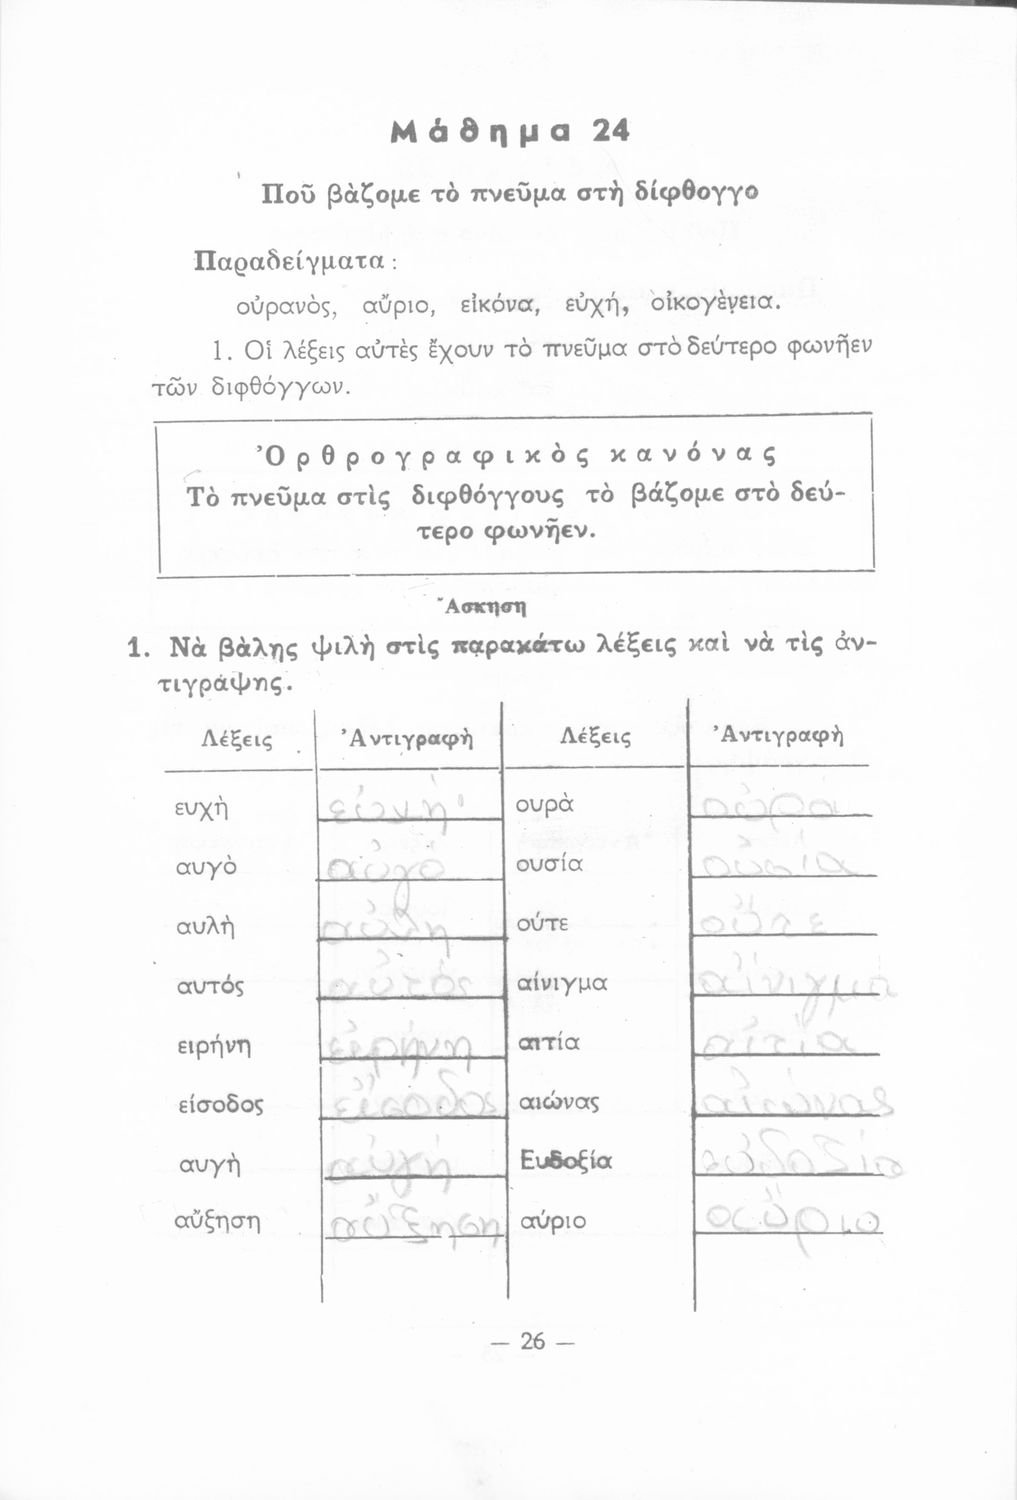 Μάθημα 24
Ποῦ βὰζομε τὸ πνεῦμα στὴ δίφθογγο
Παραδείγματα :
οὐρανὸς, αὔριο, εἰκόνα, εὐχή, οἰκογὲνεια.
1. Οἱ λέξεις αὐτὲς ἔχουν τὸ πνεῦμα στὸ δεύτερο φωνῆεν
τῶν διφθόγγων.
Ὀρθρογραφικὸς κανόνας
Τὸ πνεῦμα στὶς διφθόγγους τὸ βάζομε στὸ δεύ-
τερο φωνῆεν.
Ἄσκηση
1. Νὰ βὰλης ψιλὴ στὶς παρακάτω λέξεις καὶ νὰ τὶς ἀν-
τιγράψης.
Λέξεις Ἀντιγραφὴ Λέξεις Ἀντιγραφὴ
ευχὴ εὐχή ουρὰ οὐρα
αυγὸ αὐγο ουσία οὐσία
αυλὴ αὐλη ούτε οὔτε
αυτός αὐτὸς αίνιγμα αἴνιγμα
ειρήνη εἰρήνη αιτία αἰτία
είσοδος εἴσοδος αιώνας αἰώνας
αυγὴ αὐγή Ευδοξία
αὔξηση αὔξηση αύριο αὔριο
— 26 —